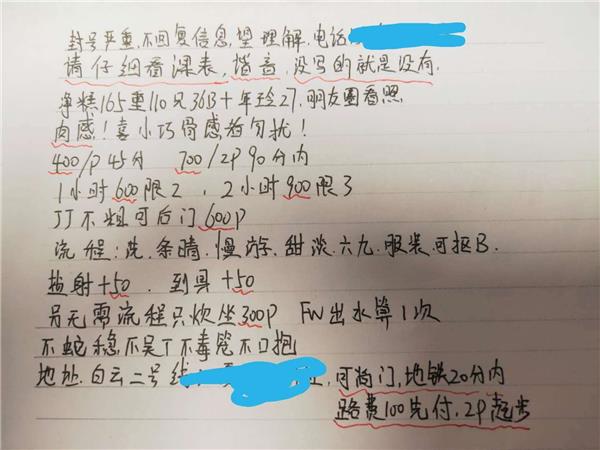 封号严重.不回复信息,望理解.电话
请仔细看课表,谐音,没写的就是没有.
净糕165重110兄36B+年玲27.朋友圈看照
肉感!喜小巧骨感者勿扰!
400/P 45分 700/2P 90分内
1小时600限2 , 2小时900限3
JJ不粗可后门600P
流程:洗.条晴.慢游.甜淡.六九.服装.可抠B.
盐射+50. 到具+50
另无需流程只炊坐300P FW出水算1次
不蛇 不吴T不毒 不口抱
地址.白云二号线 ,可尚门,地铁20分内
路费100先付.2P起步